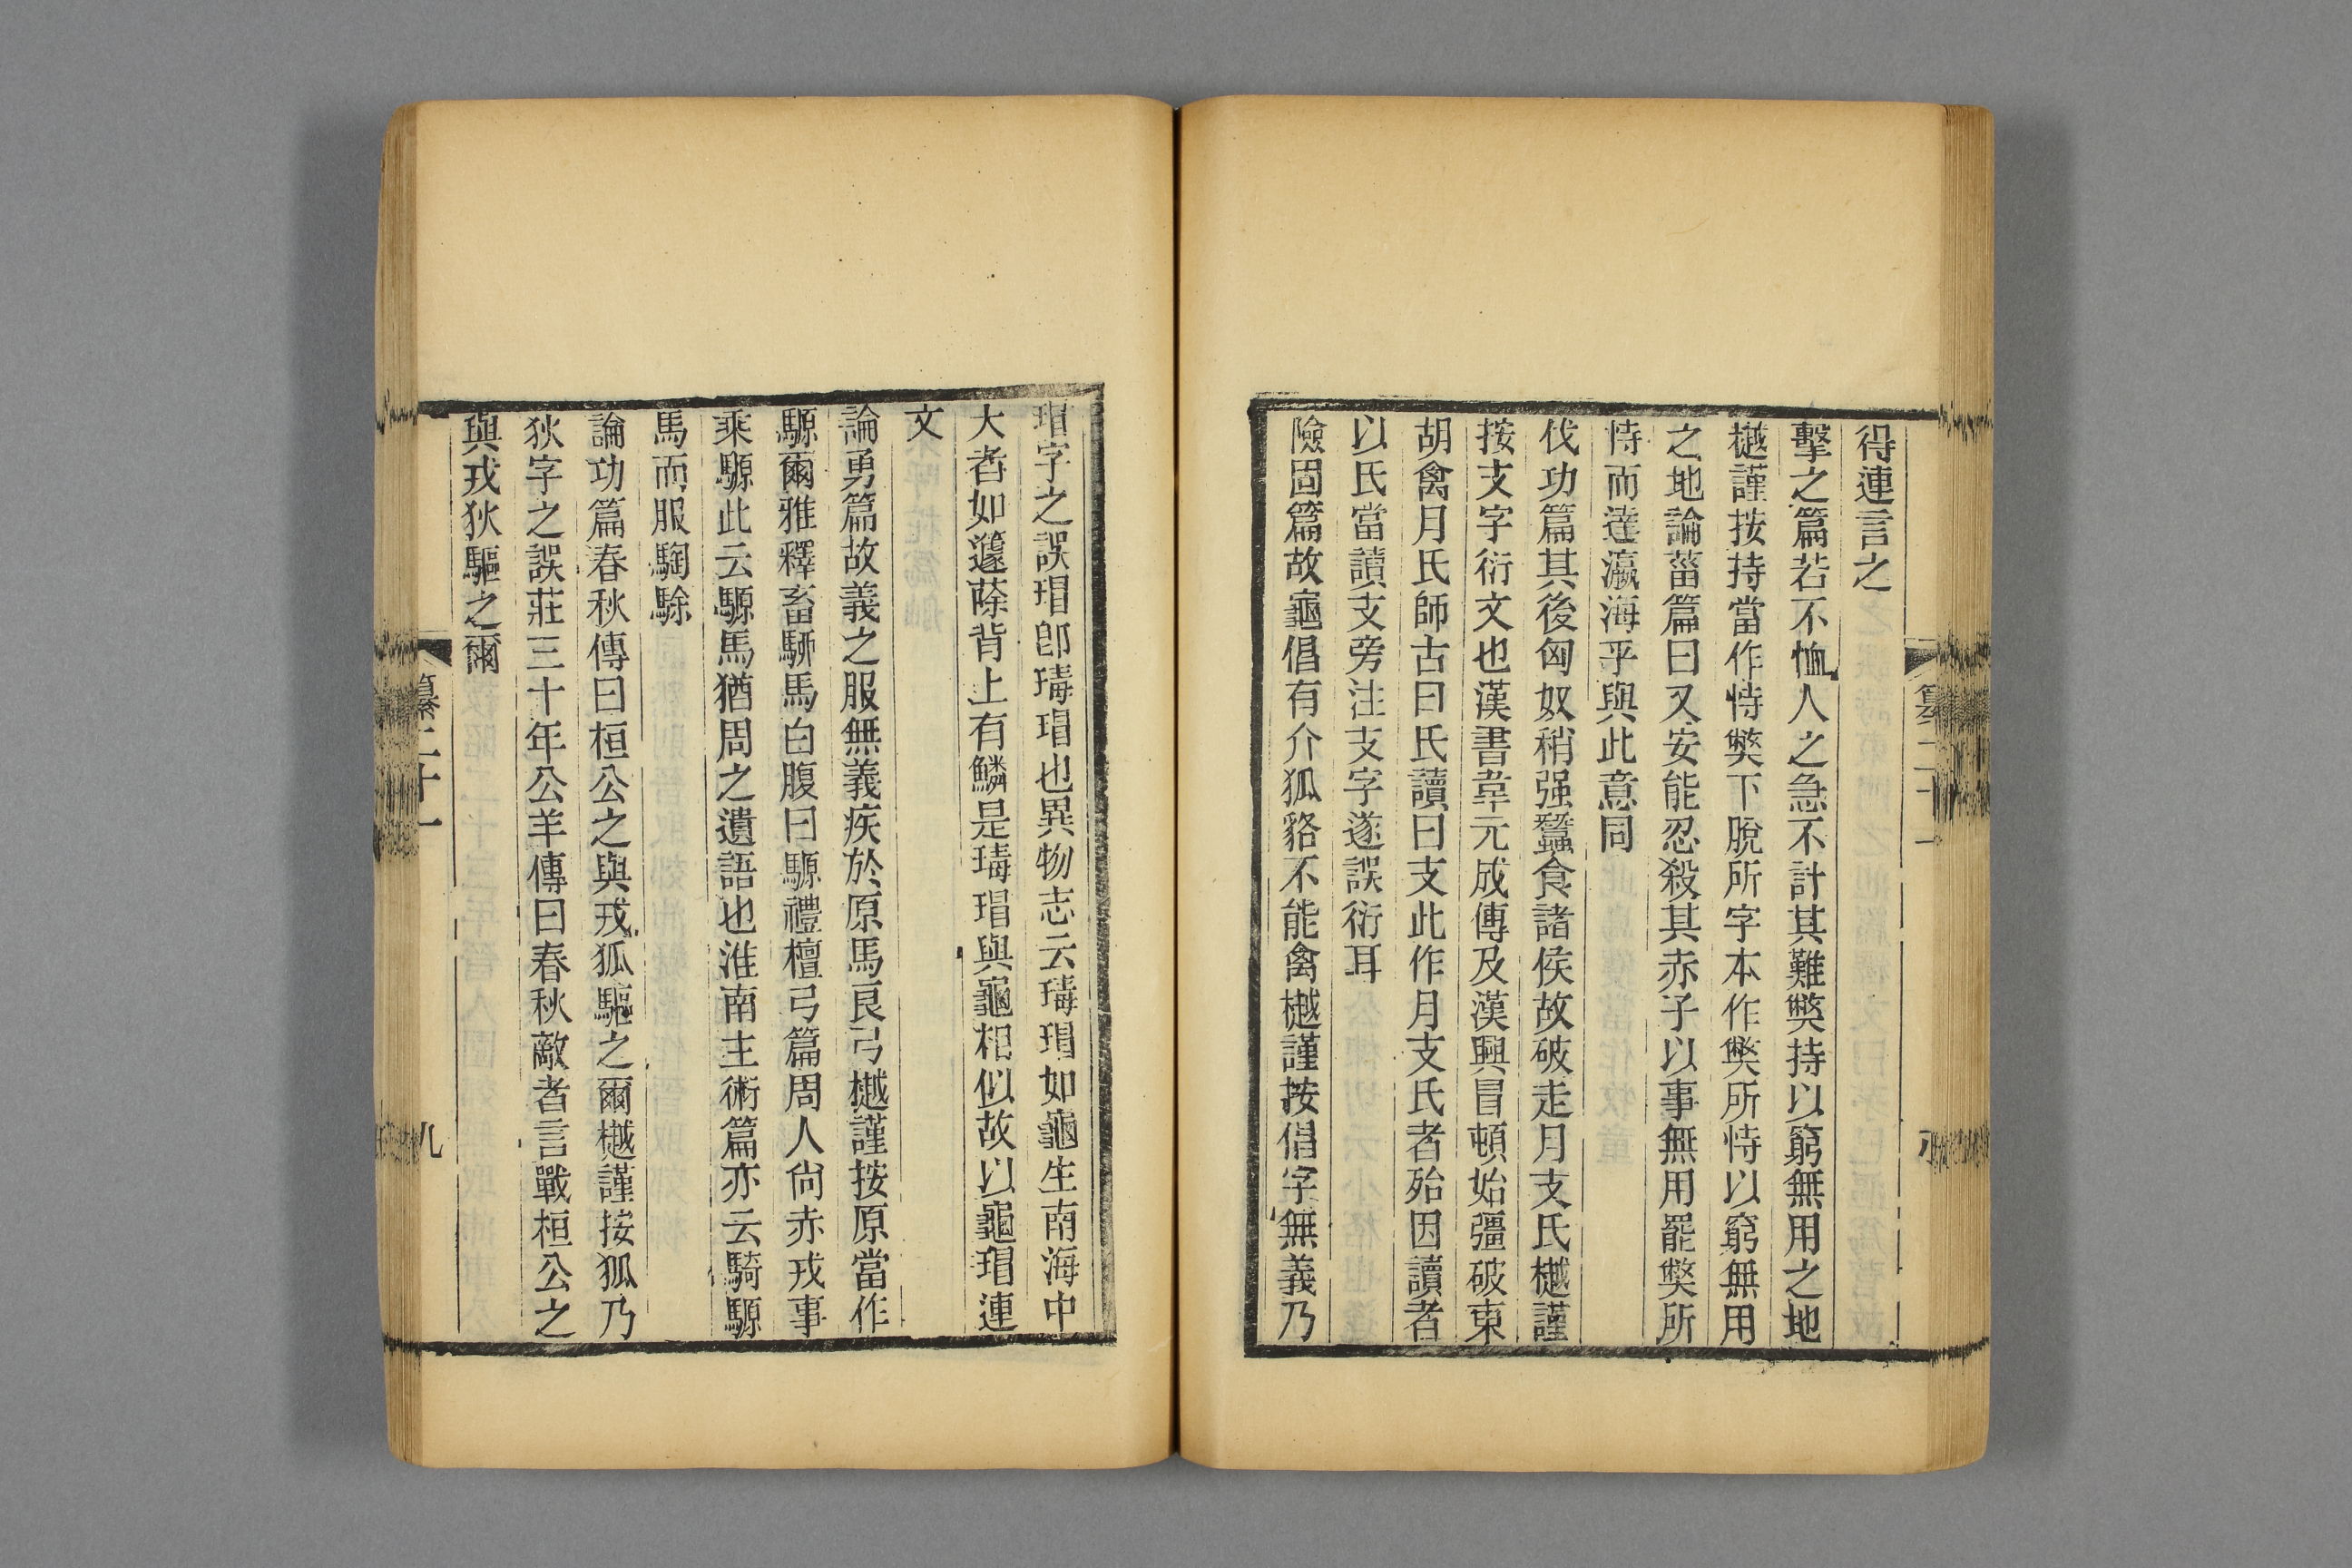 得連言之
擊之篇若不恤人之急不計其難弊持以窮無用之地
樾謹按持當作恃弊下脫所字本作弊所恃以窮無用
之地論菑篇曰又安能忍殺其赤子以事無用罷弊所
恃而達瀛海乎與此意同
伐功篇其後匈奴稍强蠶食諸侯故破走月支氏樾謹
按支字衍文也漢書韋元成傳及漢興冒頓始彊破東
胡禽月氏師古曰氏讀曰支此作月支氏者殆因讀者
以氏當讀支旁注支字遂誤衍耳
險固篇故龜倡有介狐貉不能禽樾謹按倡字無義乃
瑁字之誤瑁卽瑇瑁也異物志云瑇瑁如龜生南海中
大者如籧蒢背上有鱗是瑇瑁與龜相似故以龜瑁連
文
論勇篇故義之服無義疾於原馬良弓樾謹按原當作
騵爾雅釋畜駵馬白腹曰騵禮檀弓篇周人尚赤戎事
乘騵此云騵馬猶周之遺語也淮南主術篇亦云騎騵
馬而服騊駼
論功篇春秋傳曰桓公之與戎狐驅之爾樾謹按狐乃
狄字之誤莊三十年公羊傳曰春秋敵者言戰桓公之
與戎狄驅之爾
纂二十一
九